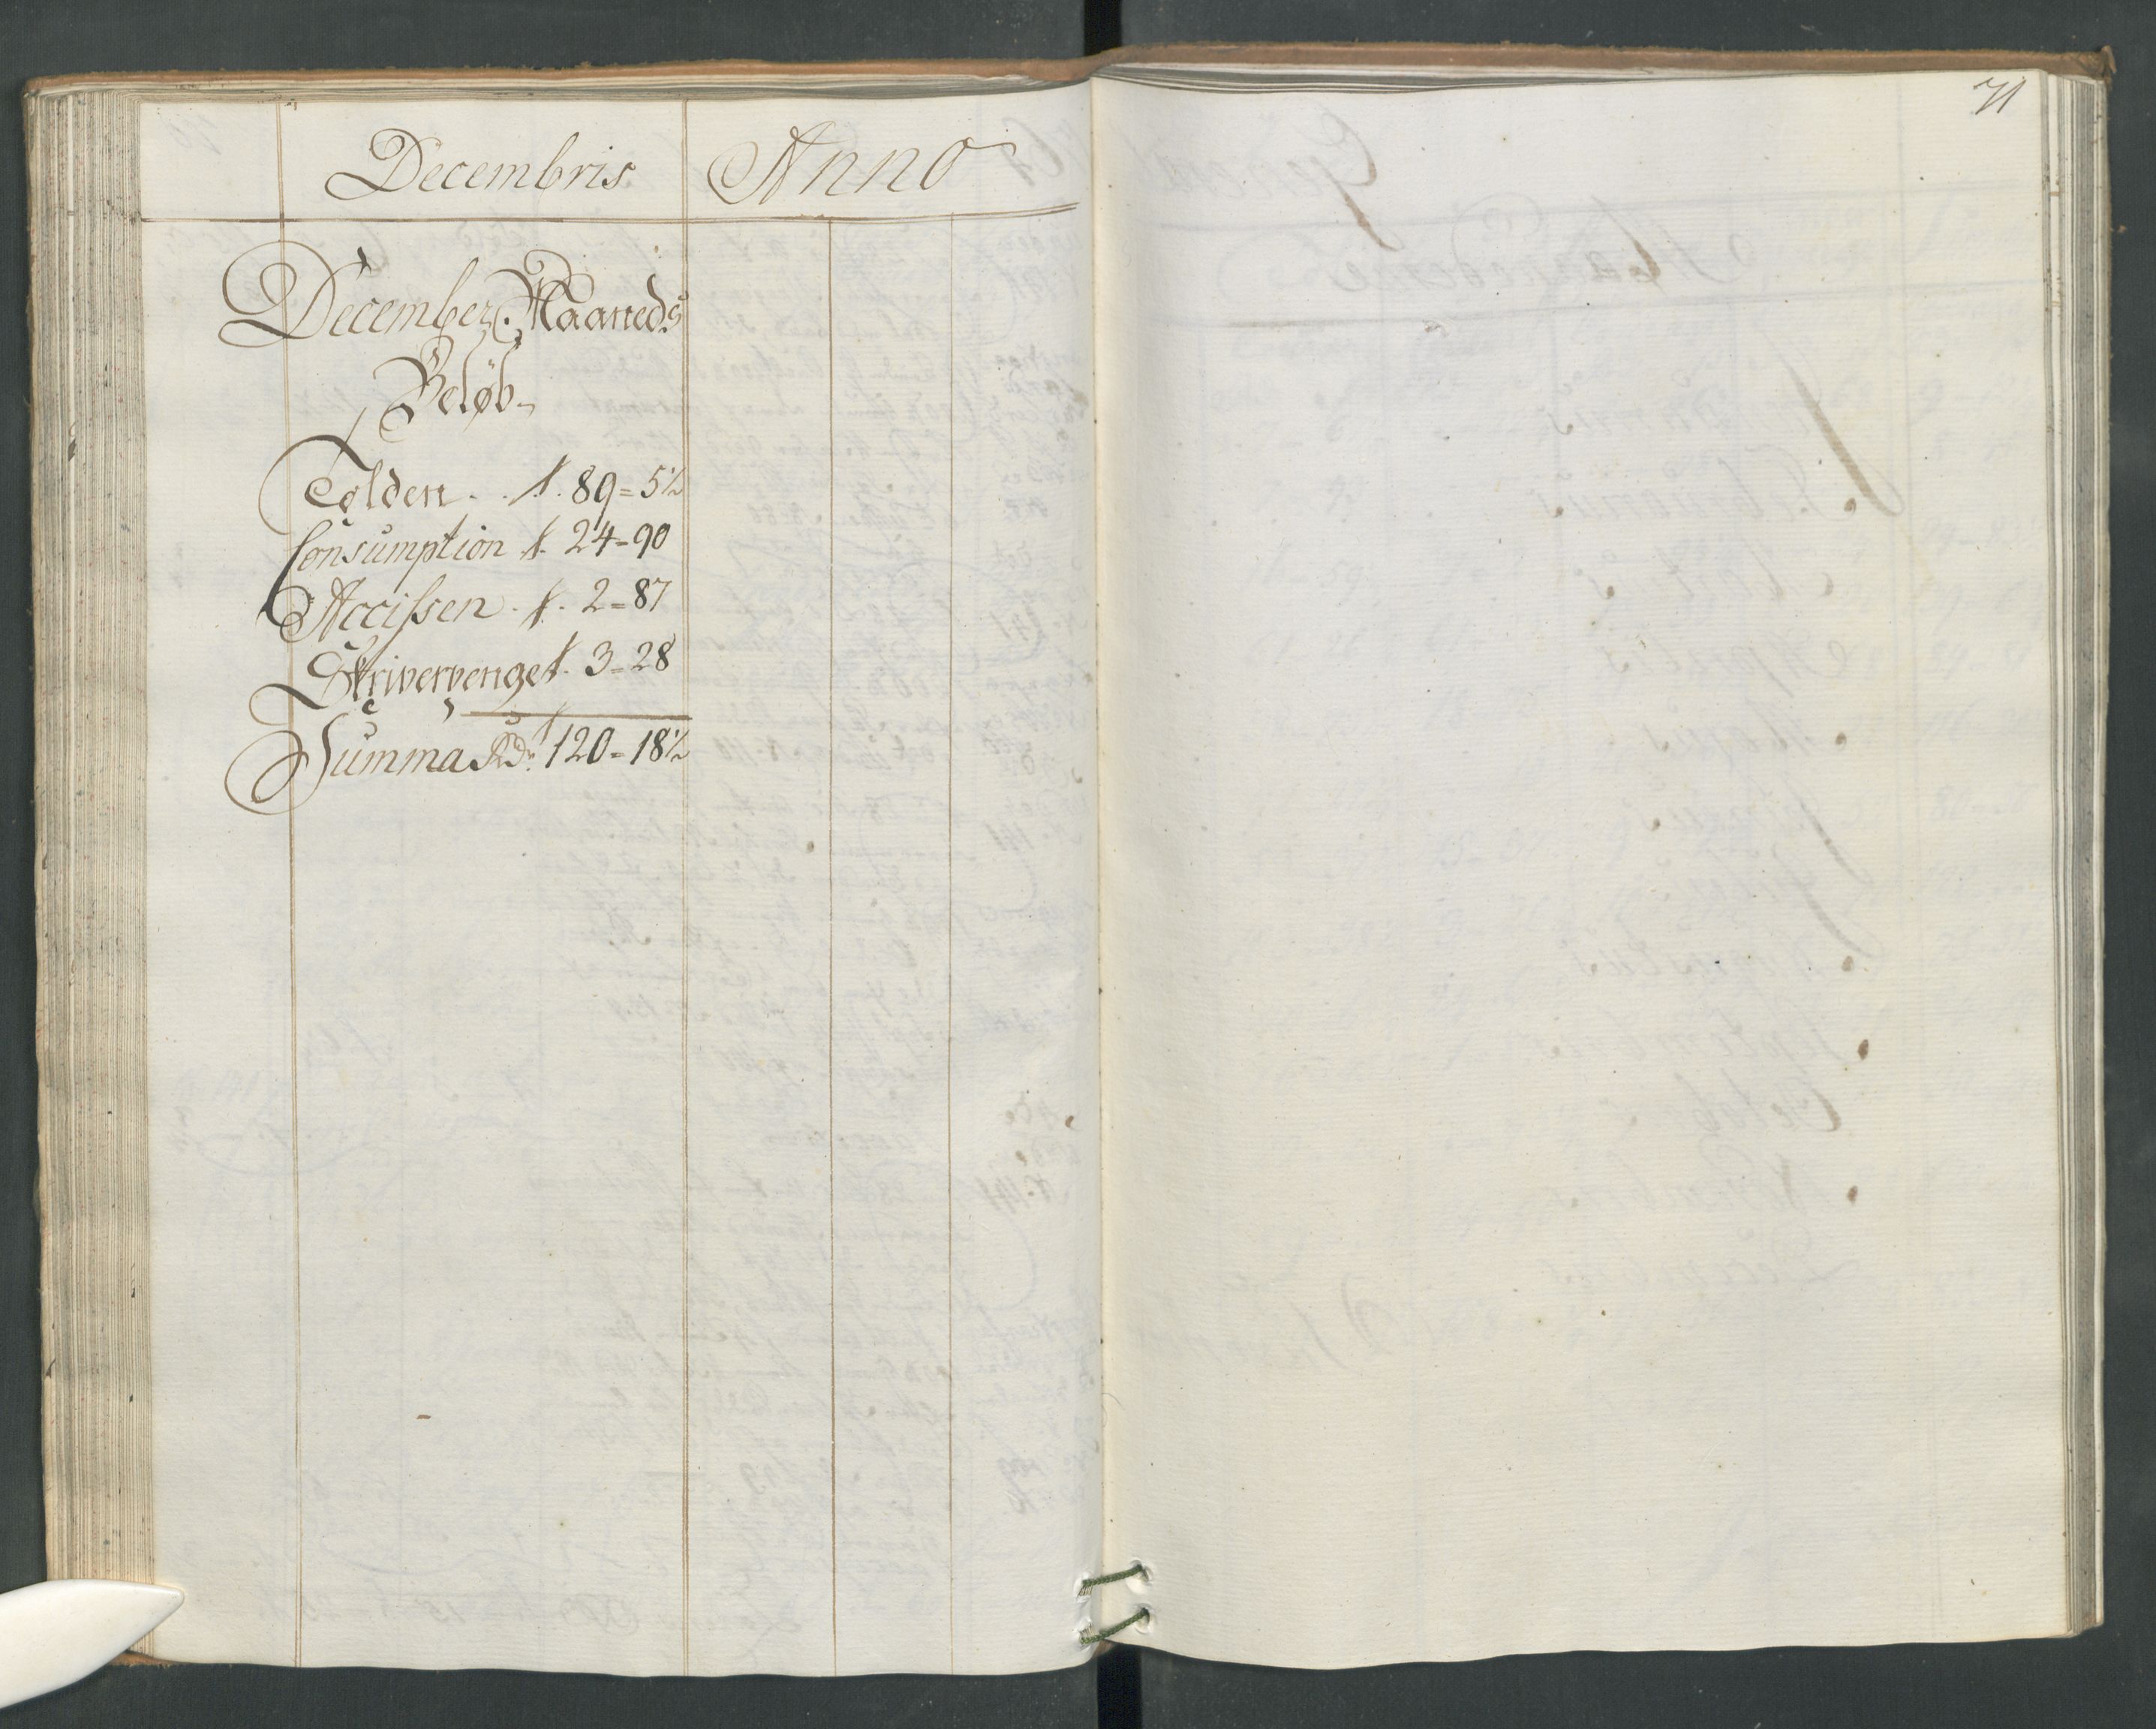 Decembris Anno
December Maaneds
Beløb
Tolden . . f. 89 = 5½
Consumption f. 24 - 90
Accissen . f. 2 = 87
Skriverpenge f. 3 - 28
Summa Rdr 120 - 18½
71